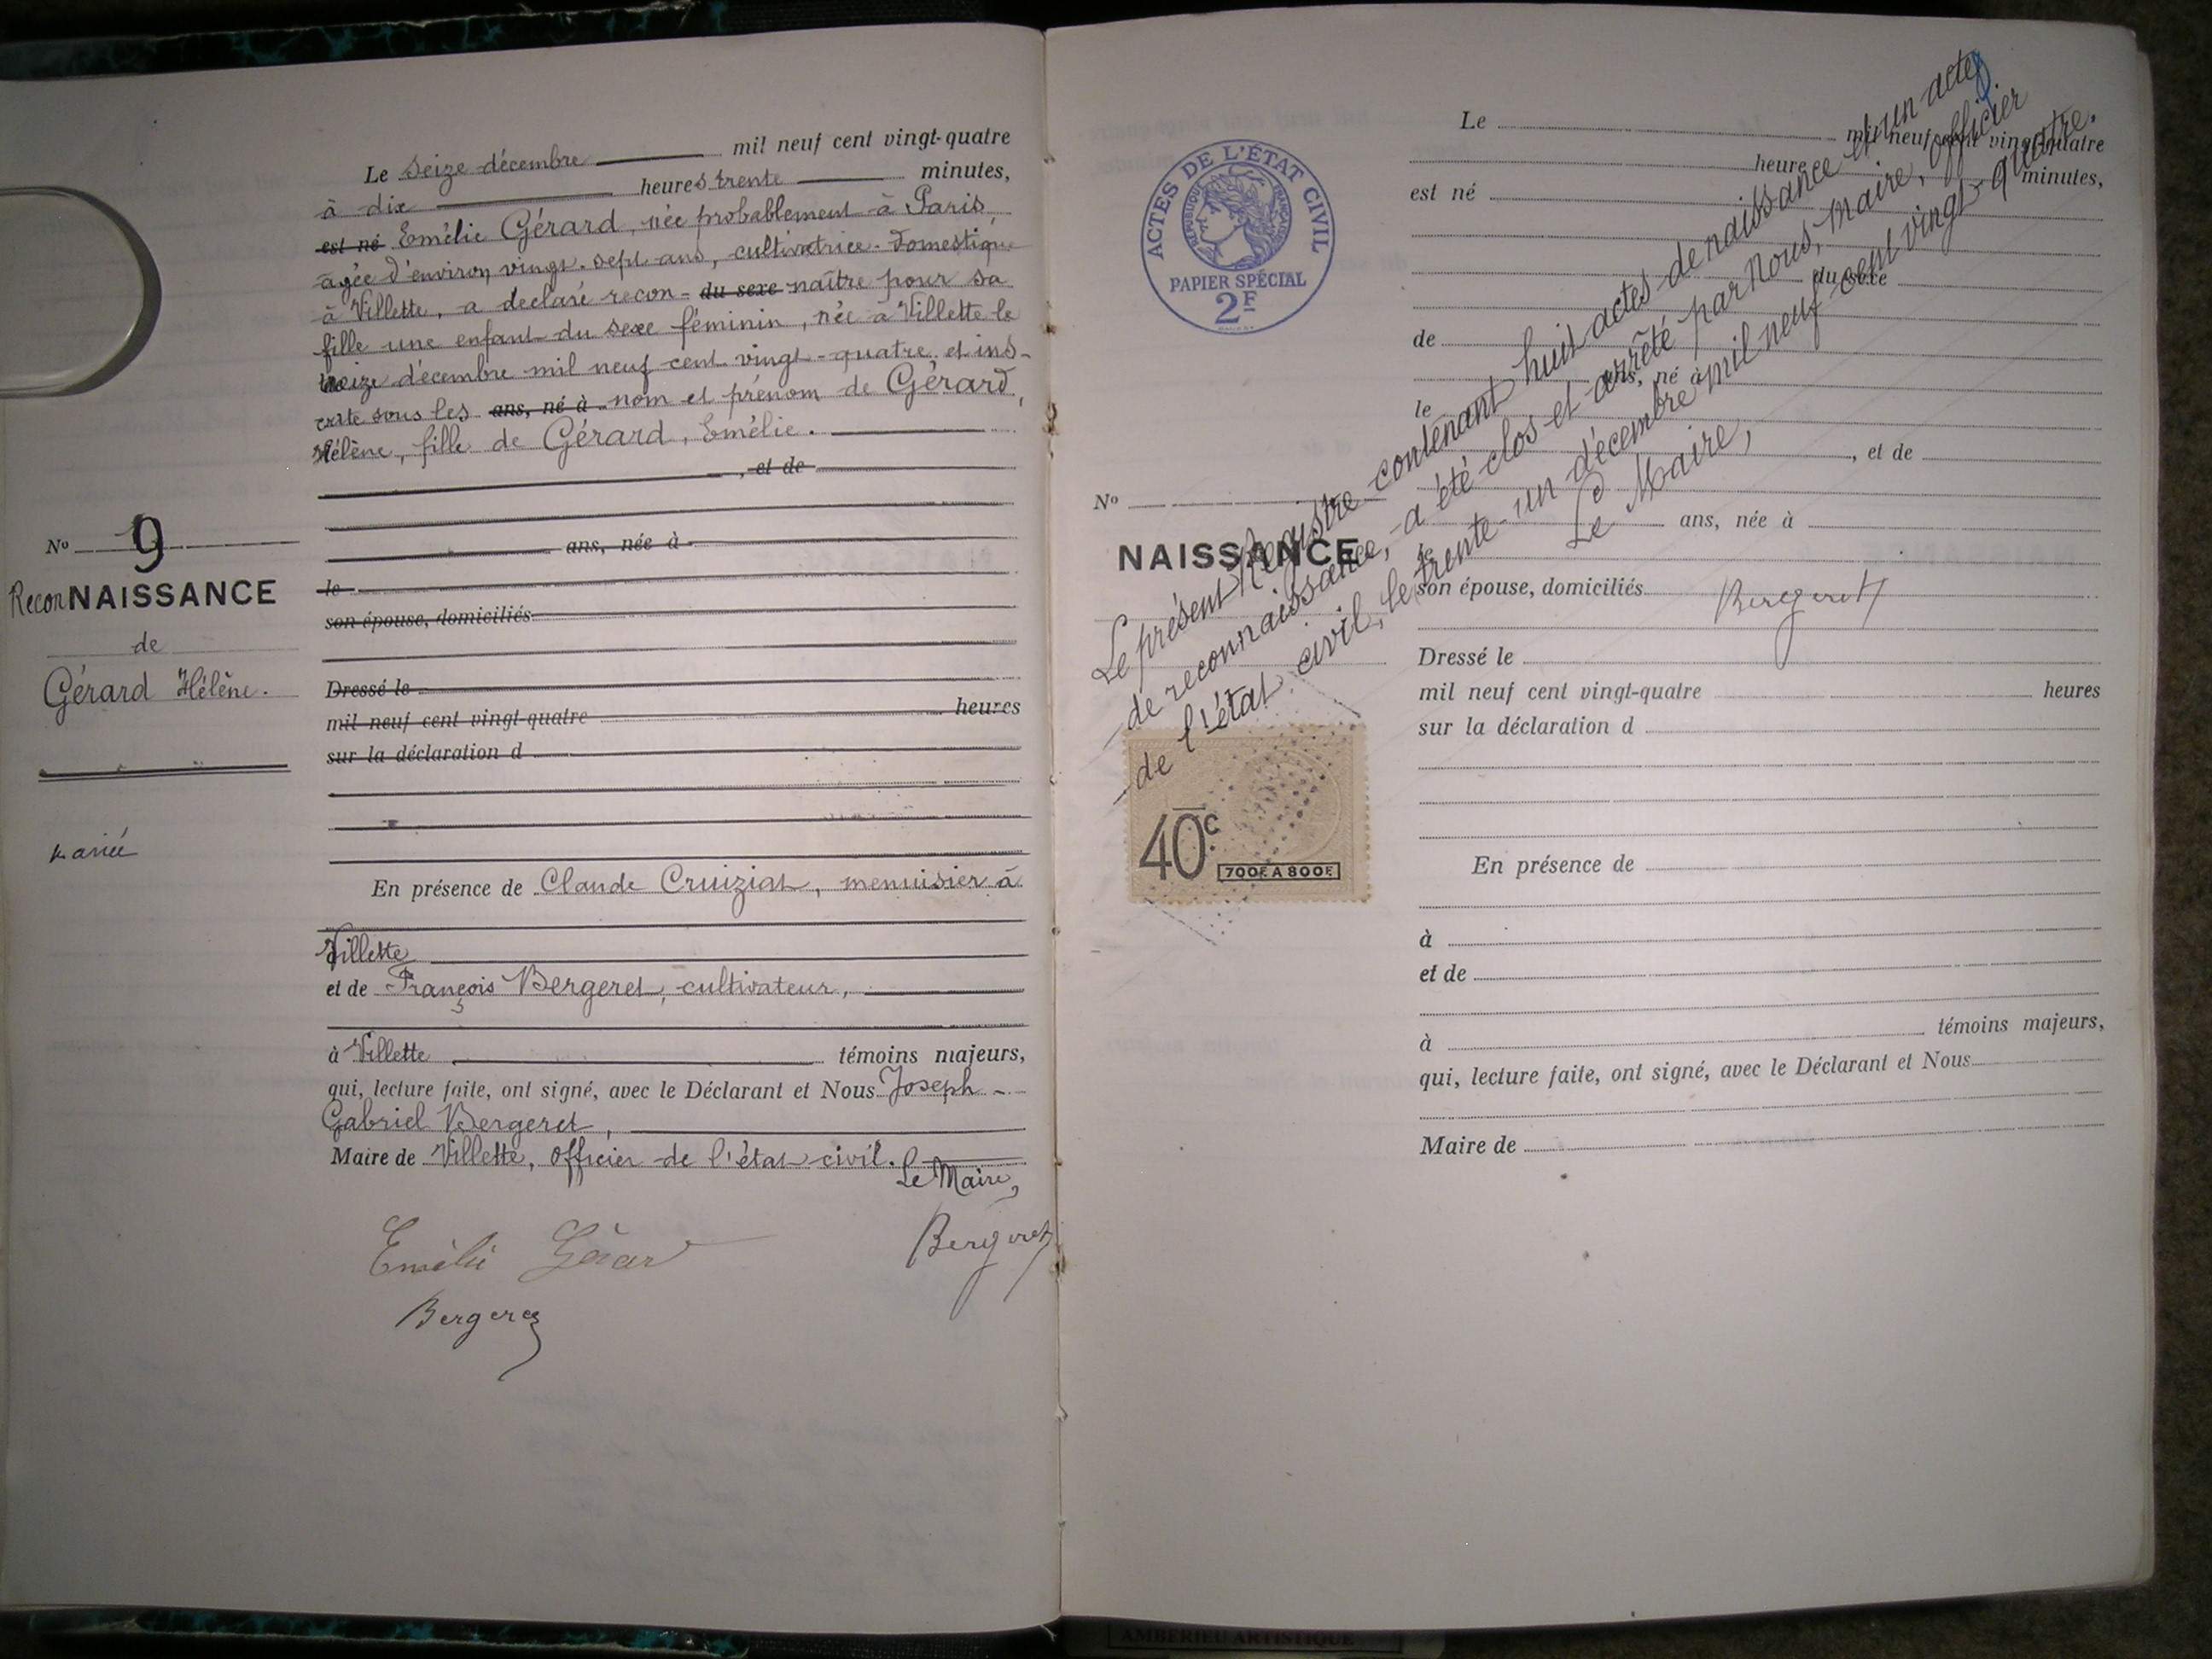 Le seize décembre mil neuf cent vingt-quatre
à dix heures trente minutes,
est né Emélie Gérard, née probablement à Paris,
âgée d'environ vingt-sept ans, cultivatrice-domestique
à Villette, a déclaré recon- du sexe naître pour sa
fille une enfant du sexe féminin, née à Villette le
décembre mil neuf cent vingt-quatre et ins-
crite sous les ans, né à nom et prénom de Gérard,
Hélène, fille de Gérard, Emélie.
, et de
ans, née à
le
son épouse, domiciliés
Dressé le
mil neuf cent vingt-quatre heures
sur la déclaration d
En présence de Claude Cruiziat, menuisier à
Villette
et de François Bergeret, cultivateur,
à Villette témoins majeurs,
qui, lecture faite, ont signé, avec le Déclarant et Nous Joseph -
Gabriel Bergeret,
Maire de Villette, officier de l'état civil.
Le Maire,
Emélie Gérard
Bergeret
Bergeret
No 9
ReconNAISSANCE
de
Gérard Hélène.
mariée
ACTES DE L'ÉTAT CIVIL
RÉPUBLIQUE FRANÇAISE
PAPIER SPÉCIAL
2F
No
NAISSANCE
40c
700F A 800F
Le présent Registre contenant huit actes de naissance et un acte
de reconnaissance, a été clos et arrêté par Nous, maire, officier
de l'état civil, le trente-un décembre mil neuf cent vingt-quatre.
Le Maire,
Bergeret
Le mil neuf cent vingt-quatre
heure minutes,
est né
du sexe
de
ans, né à
le
, et de
ans, née à
le
son épouse, domiciliés
Dressé le
mil neuf cent vingt-quatre heures
sur la déclaration d
En présence de
à
et de
à témoins majeurs,
qui, lecture faite, ont signé, avec le Déclarant et Nous
Maire de
AMBERIEU ARTISTIQUE